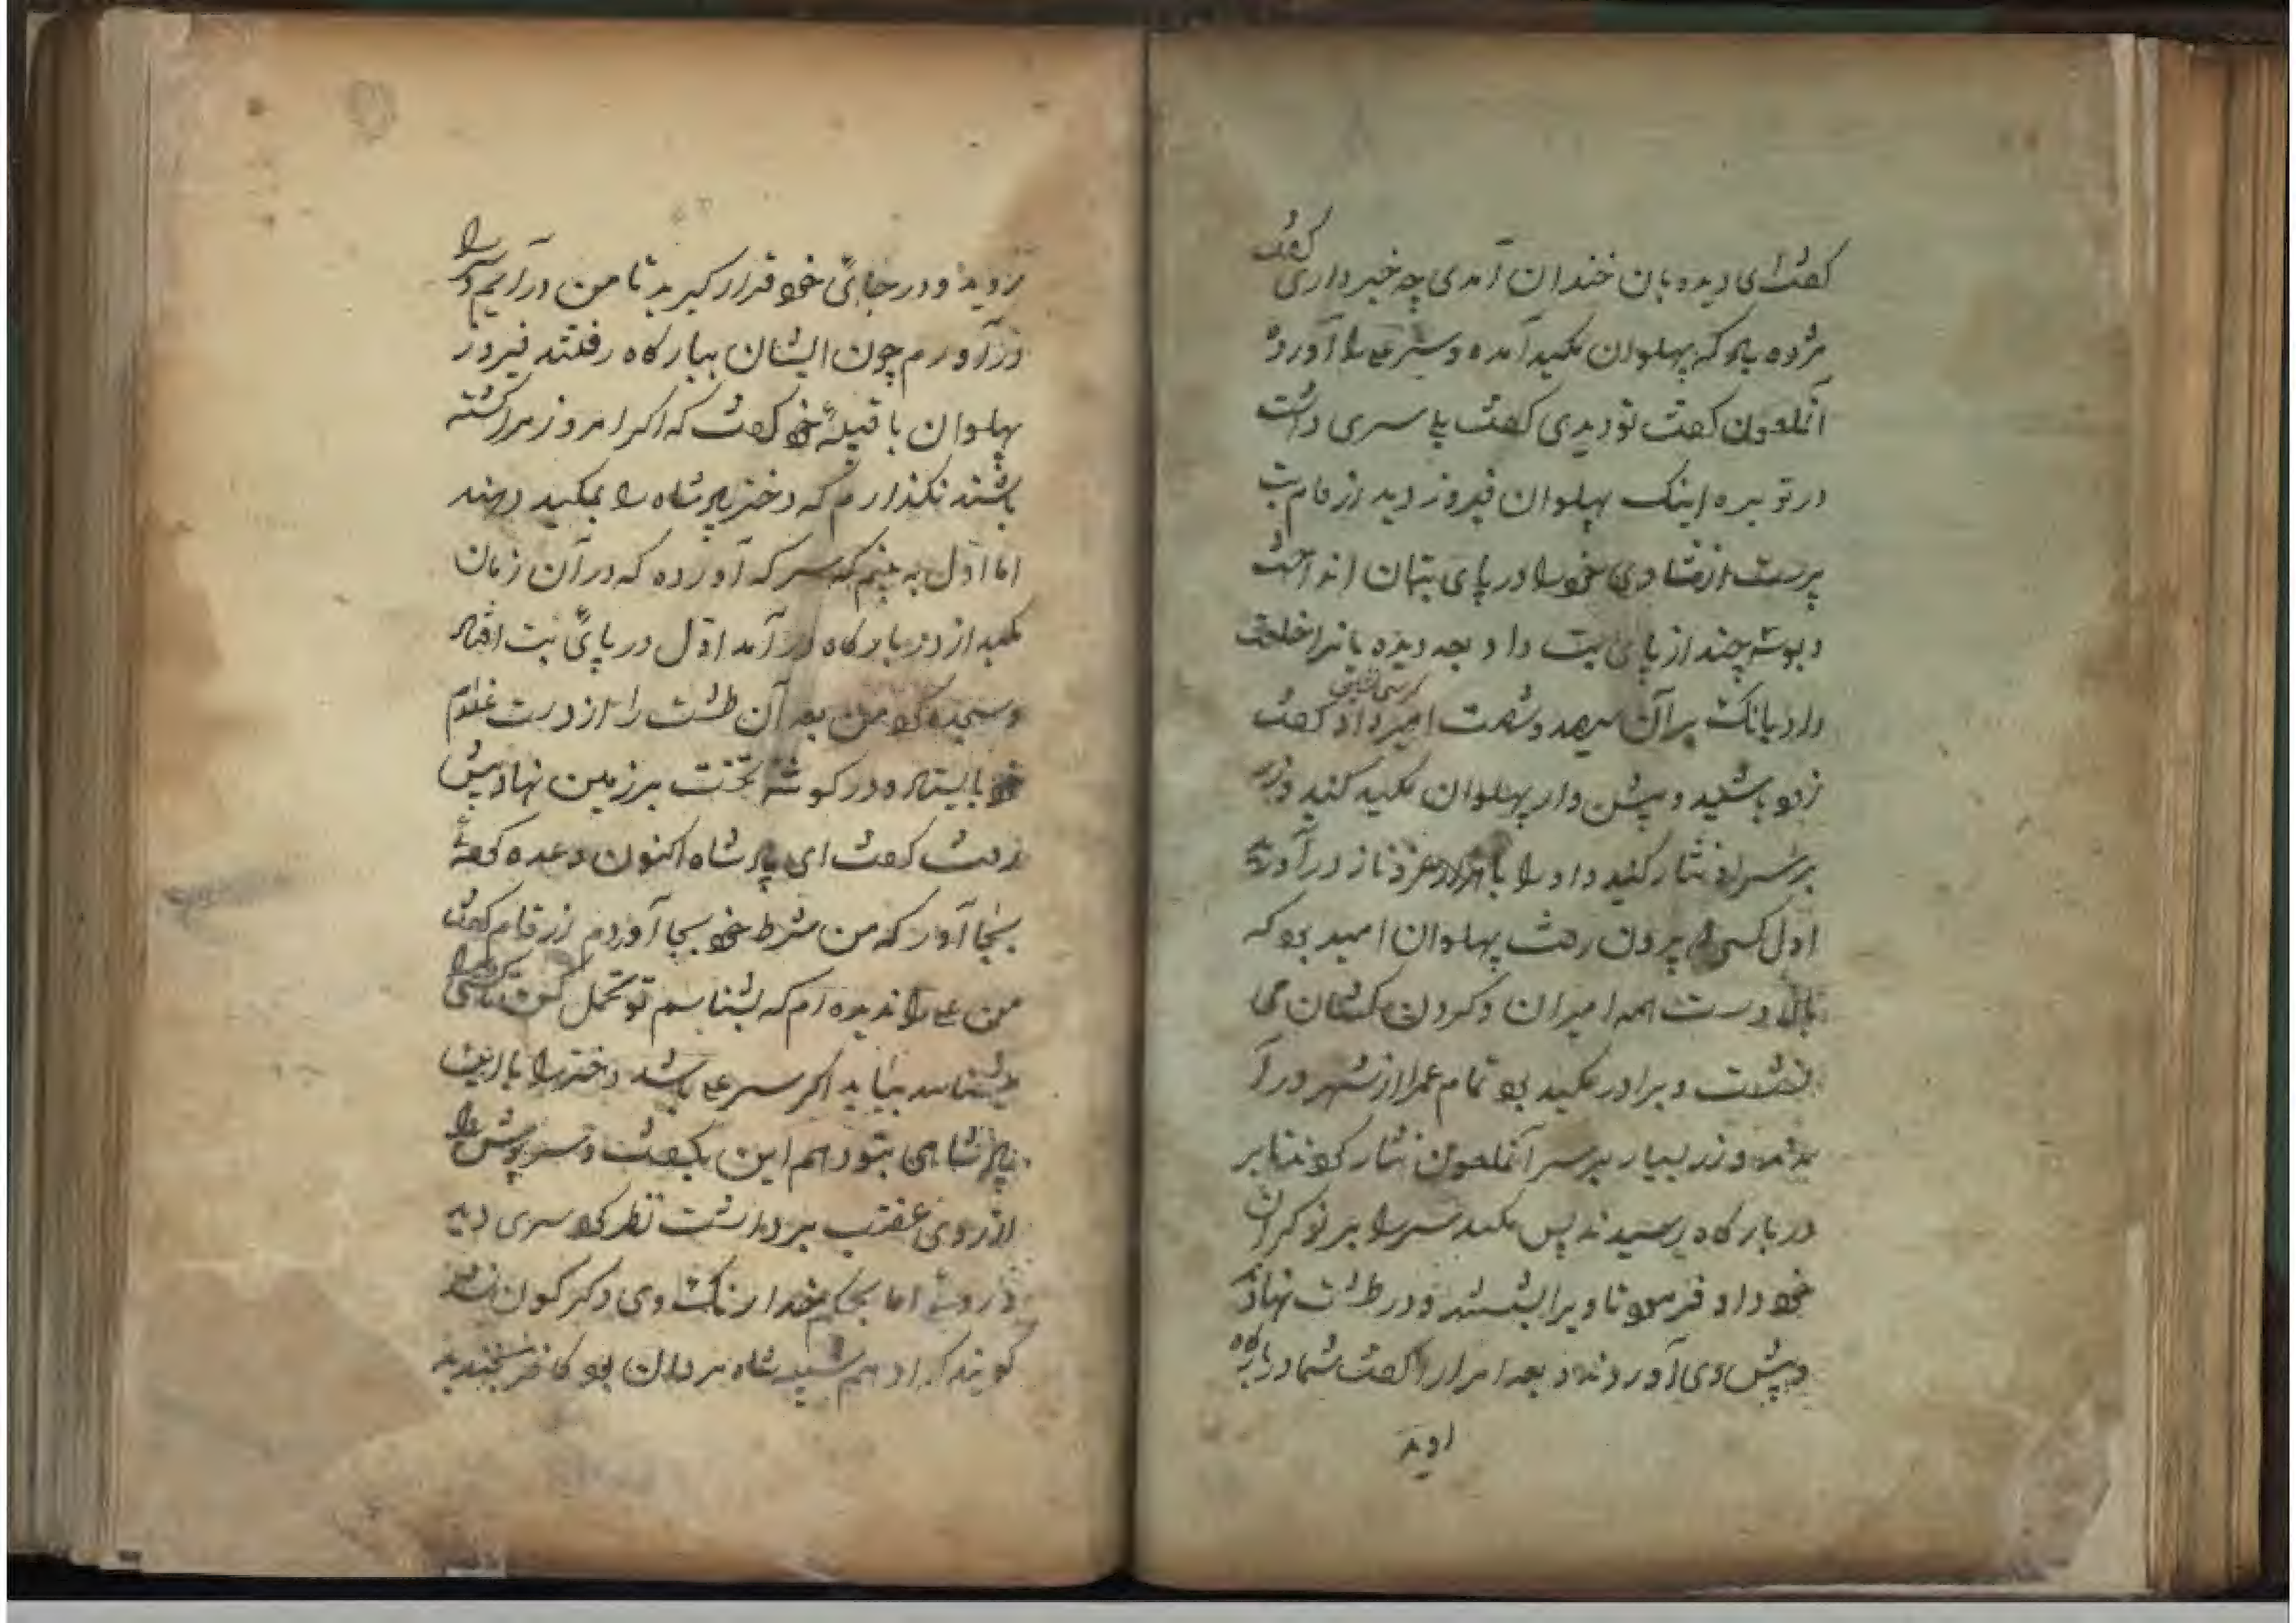 گفت ای دیده بان خندان آمدی چه خبر داری گفت
مژده باد که پهلوان مکید آمده و سر علی را آورده
آنملعون گفت تو دیدی گفت بلی سری داشت
در توبره اینک پهلوان فیروز دید از قام بت
پرست از شادی خود را در پای بتان انداخت
و بوسه چند از پای بت داد و بعد دیده بانرا خلعت
داد بانک بر آن سیصد و شصت امیر داد کرسی نشین گفت
زود باشید و پیش واز پهلوان مکید کنید و زر
بر سر او نثار کنید و او را با هزار عز و ناز در آورید
اول کسی که بیرون رفت پهلوان امید بود که
بالا دست همه امیران و گردن کشان می
نشست و برادر مکید بود تمام عمرا از شهر در آ
مدند و زر بسیار بر سر آنملعون نثار کردند تا بر
در بارگاه رسیدند پس مکید سر را بر نوکران
خود داد فرمود تا ویرا بشستند و در طشت نهاده
و پیش وی آوردند و بعد امرا را گفت شما در بارگاه
روید و در جای خود قرار گیرید تا من در آیم و سر را
در آورم چون ایشان ببارگاه رفتند فیروز
پهلوان با قبیلهٔ خود گفت که اگر امروز مرا کشته
باشند نگذارم که دختر پادشاه را بمکید دهند
اما اول به بینم که سر که آورده که در آن زمان
مکید از در بارگاه در آمد اول در پای بت افتاد
و سجده کرد من بعد آن طشت را از دست غلام
خود بایستاد و در گوشه تخت بر زمین نهاد پیش
رفت گفت ای پادشاه اکنون وعده گفته
بجا آور که من شرط خود بجا آوردم از قام گفت
من علی را ندیده ام که بشناسم تو تحمل کن تا کسی که ویرا
میشناسد بیاید اگر سر علی باشد دختر را با این
پادشاهی بتو دهم این بگفت و سرپوش را
از روی عضب برداشت نظر کرد سری دید
در وی اما بحکم خدا رنگ وی دگرگون شد
گویند که ادهم شبیه شاه مردان بود کافر بخندید